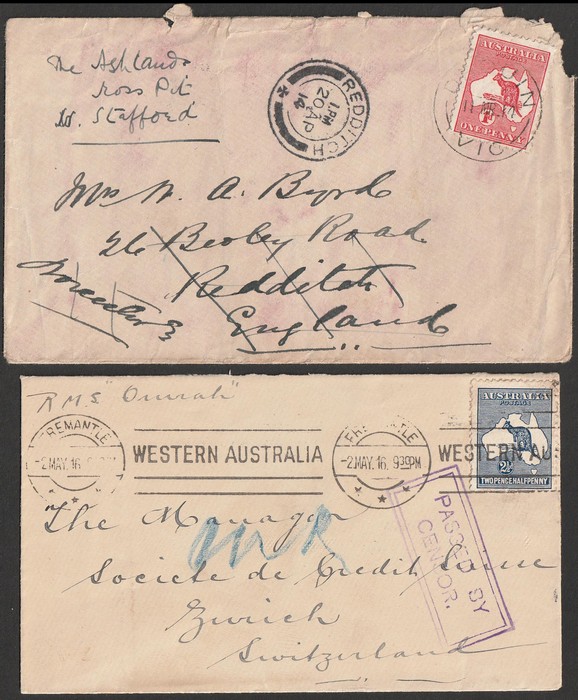 The Ashlands
Ross Pit
Stafford
REDDITCH
1.PM
20 AP
14
AUSTRALIA
POSTAGE
1D
ONE PENNY
VIC
Mrs W. A. Byrd
26 Beoley Road
Redditch
England
RMS "Omrah"
FREMANTLE
-2MAY.16.
WESTERN AUSTRALIA
FREMANTLE
-2MAY.16. 930PM
WESTERN AU
AUSTRALIA
POSTAGE
2½D
TWOPENCEHALFPENNY
PASSED BY
CENSOR.
The Manager
Societe de Credit Suisse
Zurich
Switzerland